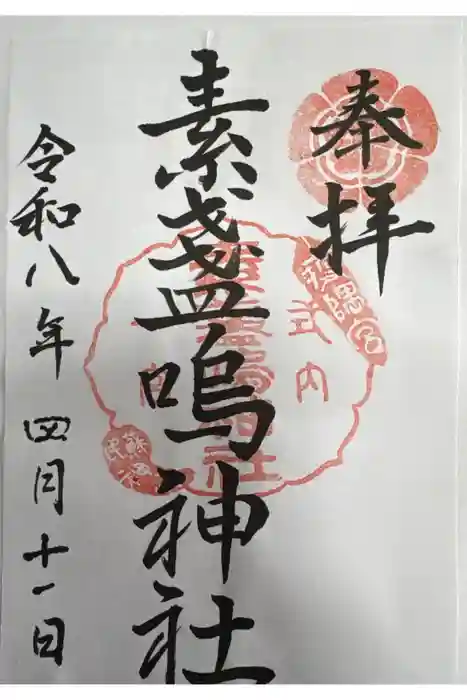 奉拝
素盞嗚神社
令和八年 四月十一日
式内
蘇民